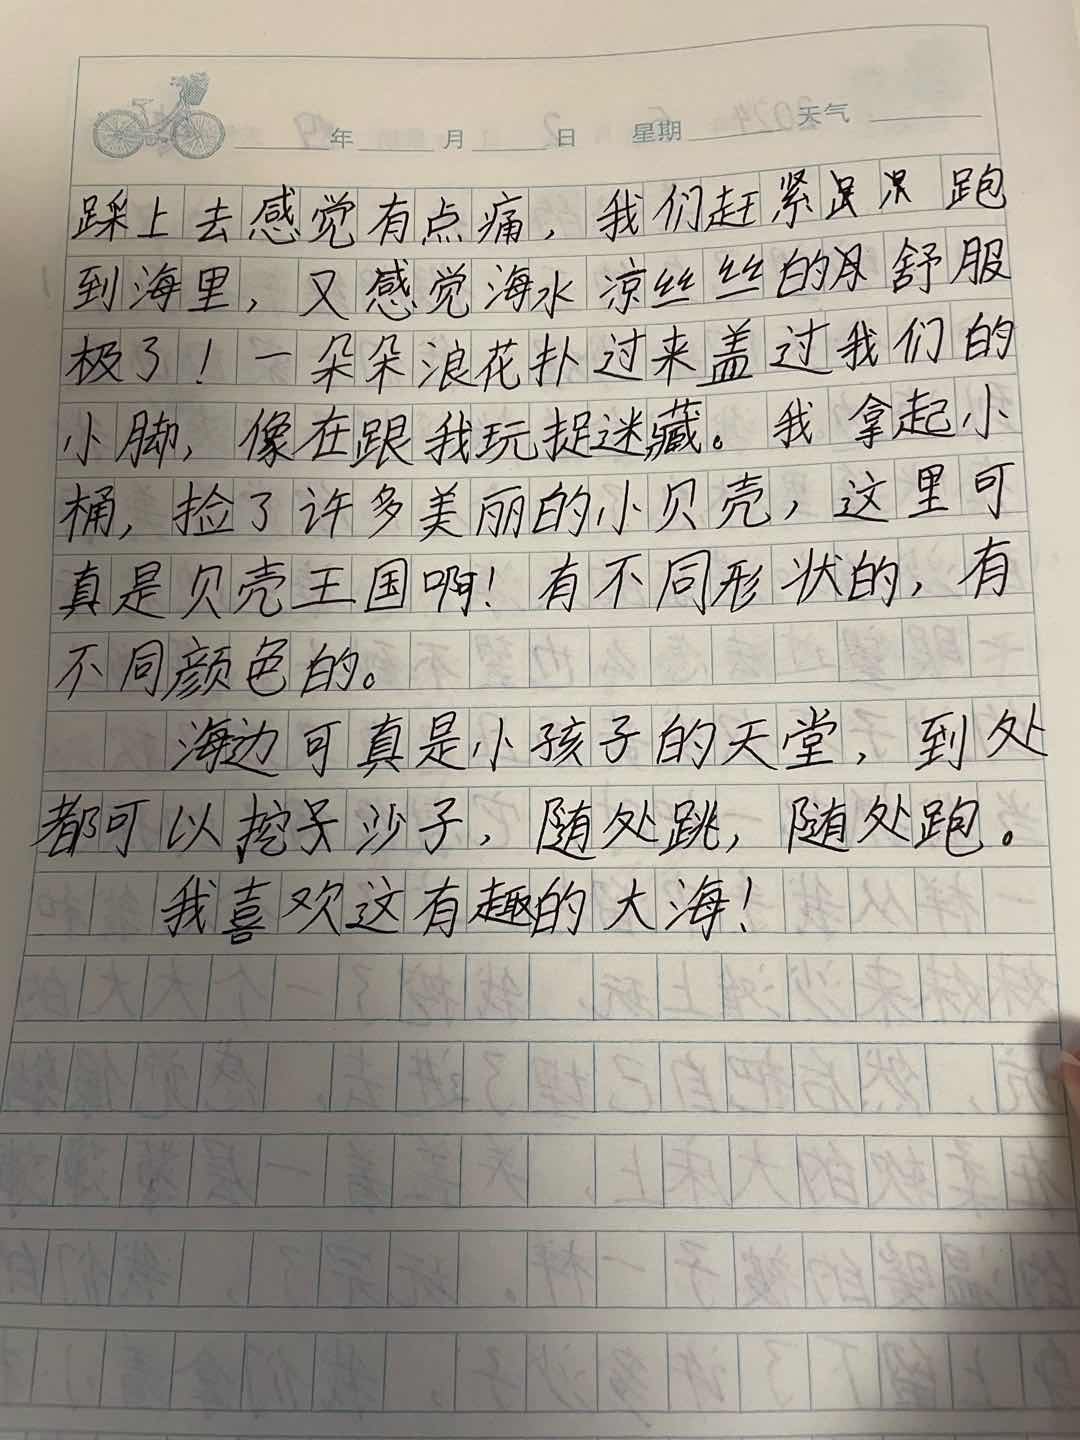 年 月 日 星期 天气
踩上去感觉有点痛，我们赶紧 跑
到海里，又感觉海水凉丝丝的 舒服
极了！一朵朵浪花扑过来盖过我们的
小脚，像在跟我玩捉迷藏。我拿起小
桶，捡了许多美丽的小贝壳，这里可
真是贝壳王国啊！有不同形状的，有
不同颜色的。
海边可真是小孩子的天堂，到处
都可以挖 沙子，随处跳，随处跑。
我喜欢这有趣的大海！